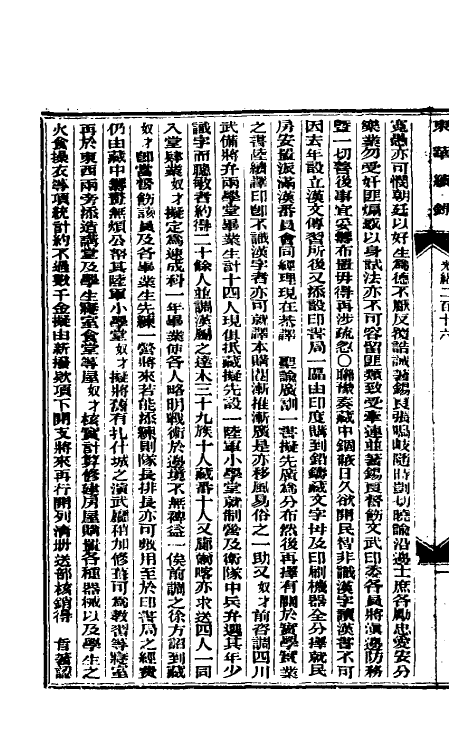 東華續錄
光緒二百十六
寬懲亦可憫朝廷以好生為德不厭反復詰誡著錫良張鳴岐隨時剴切曉諭沿邊士庶各勵忠愛安分
樂業勿受奸匪煽惑以身試法亦不可容留匪類致受牽連並著錫良督飭文武印委各員將滇邊防務
暨一切善後事宜妥籌布置毋得再涉疏忽○聯豫奏藏中錮蔽日久欲開民智非識漢字讀漢書不可
因去年設立漢文傳習所後又添設印書局一區由印度購到鉛鑄藏文字母及印刷機器全分擇就民
房安置派滿漢番員會同經理現在恭譯 聖諭廣訓一書擬先廣為分布然後再擇有關於實學實業
之書陸續譯印即不識漢字者亦可就譯本購閱漸推漸廣是亦移風易俗之一助又奴才前咨調四川
武備將弁兩學堂畢業生計十四人現俱抵藏擬先設一陸軍小學堂就制營及衛隊中兵弁選其年少
識字而聰敏者約得二十餘人並調漢屬之達木三十九族十人藏番十人又廓爾喀亦求送四人一同
入堂肄業奴才擬定為速成科一年畢業使各人略明戰術於邊境不無裨益一俟前調之徐方詔到藏
奴才即當督飭該員及各畢業生先練一營將來若能添練則隊長排長亦可敷用至於印書局之經費
仍由藏中籌 無煩公帑其陸軍小學堂奴才擬將舊有扎什城之演武廳稍加修葺可為教習等寢室
再於東西兩旁添造講堂及學生寢室食堂等屋奴才核實計算修建房屋購置各種器械以及學生之
火食操衣等項統計約不過數千金擬由新撥款項下開支將來再行開列清册送部核銷得 旨著認